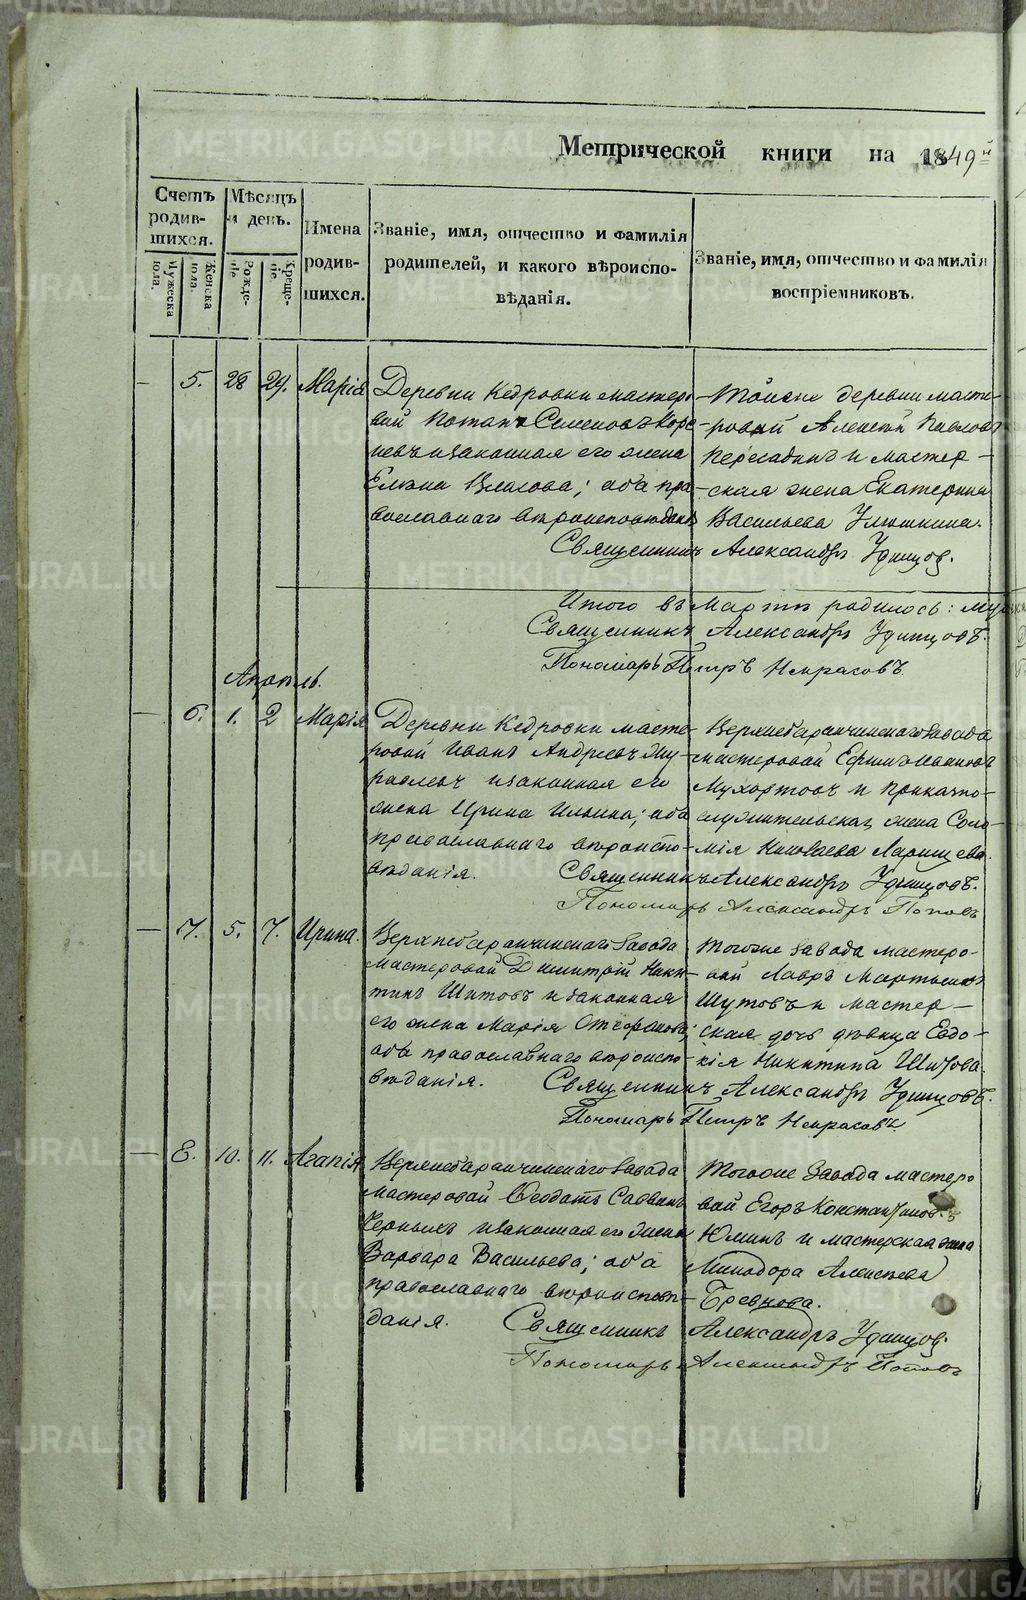 METRIKI.GASO-URAL.RU
Метрической книги на 1849й
Счетъ родив-шихся.
Мужеска пола.
Женска пола.
Мѣсяцъ и день.
Рожде-нiе.
Креще-нiе.
Имена родив-шихся.
Званіе, имя, отчество и фамилія родителей, и какого вѣроиспо-вѣданія.
Званіе, имя, отчество и фамилія воспріемниковъ.
— 5. 28 29. Марія
Деревни Кедровки мастеро-
вый Потапъ Семеновъ
невъ и законная его жена
Елена Власова; оба пра-
вославнаго вѣроисповѣданія
Тойже деревни масте-
ровый Алексѣй Павловъ
и мастер-
ская жена Екатерина
Васильева Улюшкина.
Священникъ Александръ Удинцов.
Итого въ Мартѣ родилось:
Священникъ Александръ Удинцовъ.
Пономарь Петръ Некрасовъ.
Апрѣль.
— 6. 1. 2 Марія
Деревни Кедровки масте-
ровой Иванъ Андреевъ Му-
равлевъ и законная его
жена Ирина Ильина; оба
православнаго вѣроиспо-
вѣданія.
Верхнебаранчинскаго завода
мастеровой Ефимъ Ивановъ
Мухортовъ и Приказно-
служительская жена Соло-
мія Николаева Ларищева.
Священникъ Александръ Удинцовъ.
Пономарь Александръ Поповъ
— 7. 5. 7. Ирина.
Верхнебаранчинскаго завода
мастеровой Димитрій Ники-
тинъ Шитовъ и законная
его жена Марія Стефанова;
оба православнаго вѣроиспо-
вѣданія.
Тогоже завода мастеро-
вой Лавръ Мартыновъ
Шутовъ и мастер-
ская дочь дѣвица Евдо-
кія Никитина Шитова.
Священникъ Александръ Удинцовъ.
Пономарь Петръ Некрасовъ.
— 8. 10. 11. Агапія
Верхнебаранчинскаго завода
мастеровой Ѳеодотъ Саввинъ
Черныхъ и законная его жена
Варвара Васильева; оба
православнаго вѣроисповѣ-
данія.
Тогоже завода мастеро
вой Егоръ Константиновъ
Юминъ и мастерская жена
Минодора Алексѣева
Бревнова.
Священникъ Александръ Удинцов.
Пономарь Александръ Поповъ